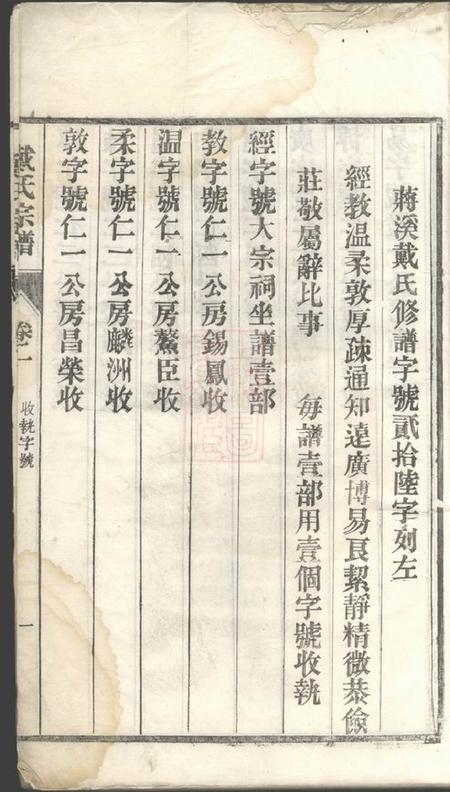 蔣溪戴氏修譜字號貳拾陸字列左
經教温柔敦厚疎通知遠廣博易良絜靜精微恭儉
莊敬屬辭比事　每譜壹部用壹個字號收執
經字號大宗祠坐譜壹部
教字號仁一公房錫鳳收
温字號仁一公房鰲臣收
柔字號仁一公房麟洲收
敦字號仁一公房昌榮收
戴氏宗譜　卷一　收執字號　一